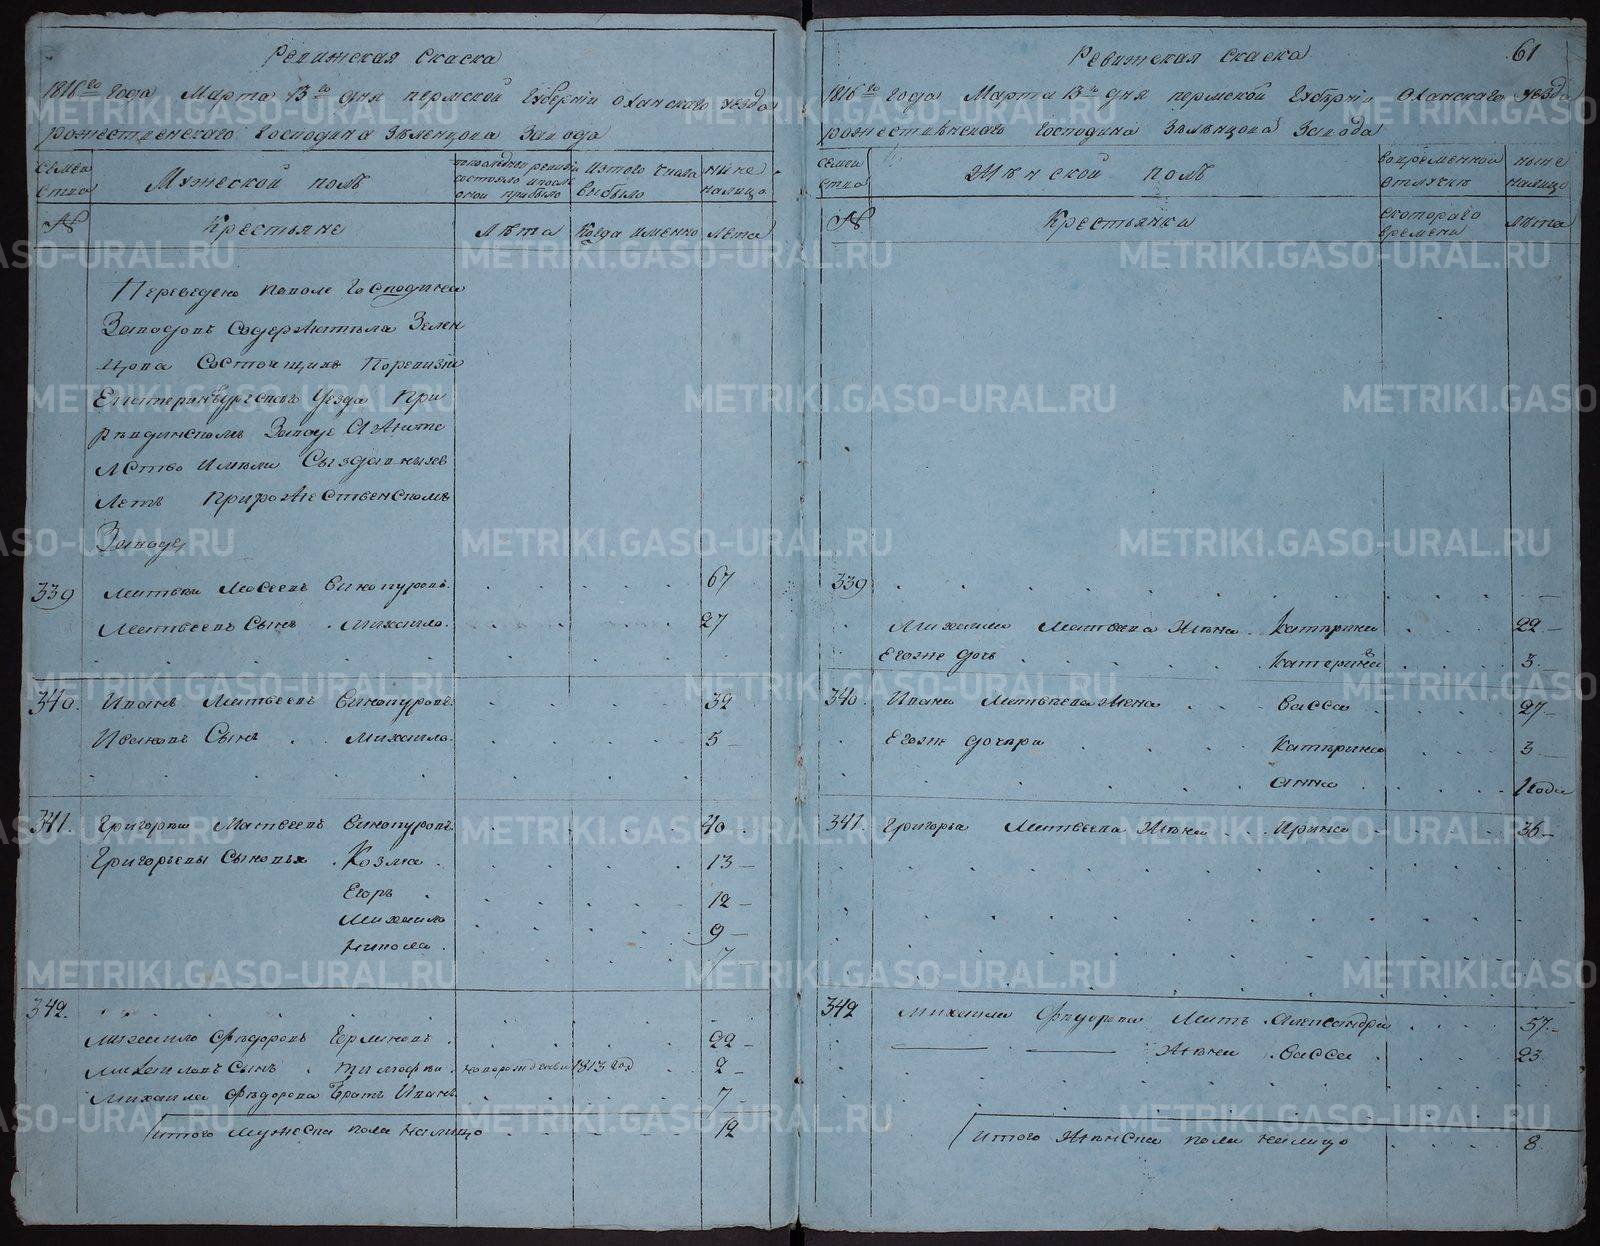 Ревижская скаска
1816го года Марта 13го дня пермской Губернii Оханского уезда
рожественского Господина Зеленцова Завода
семеи
ства
Мужеской полъ
попоследней ревизiи
состояло ипосле
оной прибыло
Изтого числа
выбыло
ныне
налицо
№
Крестьяне
Лѣта
Когда имянно
лета
Переведено поволе Господина
Заводовъ Содержателя Зелен
цова Состоящие Поревизiи
Екатеринбургского Уезда При
Ревдинскомъ Заводе А Жите
лство имели Сыздавныхъ
Летъ Прирожественскомъ
Заводе
339 Матвей Мосеевъ Винокуровъ 67
Матвеевъ Сынъ Михаило 27
340. Иванъ Матвеевъ Винокуровъ 32
Ивановъ Сынъ Михаило 5
341. Григорей Матвеевъ Винокуровъ 40
Григорьевы Сыновья Козма 13
Егоръ 12
Михаило 9
Никола 7
342.
Михаило Фѣдоровъ 22
Михаиловъ Сынъ Тимофеи новорожденъ 1813 год 2
Михаила Фѣдорова Братъ Иванъ 7
Итого Мужеска пола Налицо 12
Ревижская скаска 61
1816го года Марта 13го дня пермской Губернiи Оханского уезда
рожественского Господина Зеленцова Завода
семеи
ства
Женской полъ
вовременной
отлучке
ныне
налицо
№
Крестьянки
скоторого
времени
лѣта
339
Михаила Матвеева Жена Катерина 22
Егоже дочь Катерина 3
340. Ивана Матвеева Жена Васса 27
Егоже дочери Катерина 3
Анна 1 года
341. Григорья Матвеева Жена Ирина 36
342 Михаила Фѣдорова Мать Александра 57
Жена Васса 23
Итого Женска пола налицо 8
METRIKI.GASO-URAL.RU